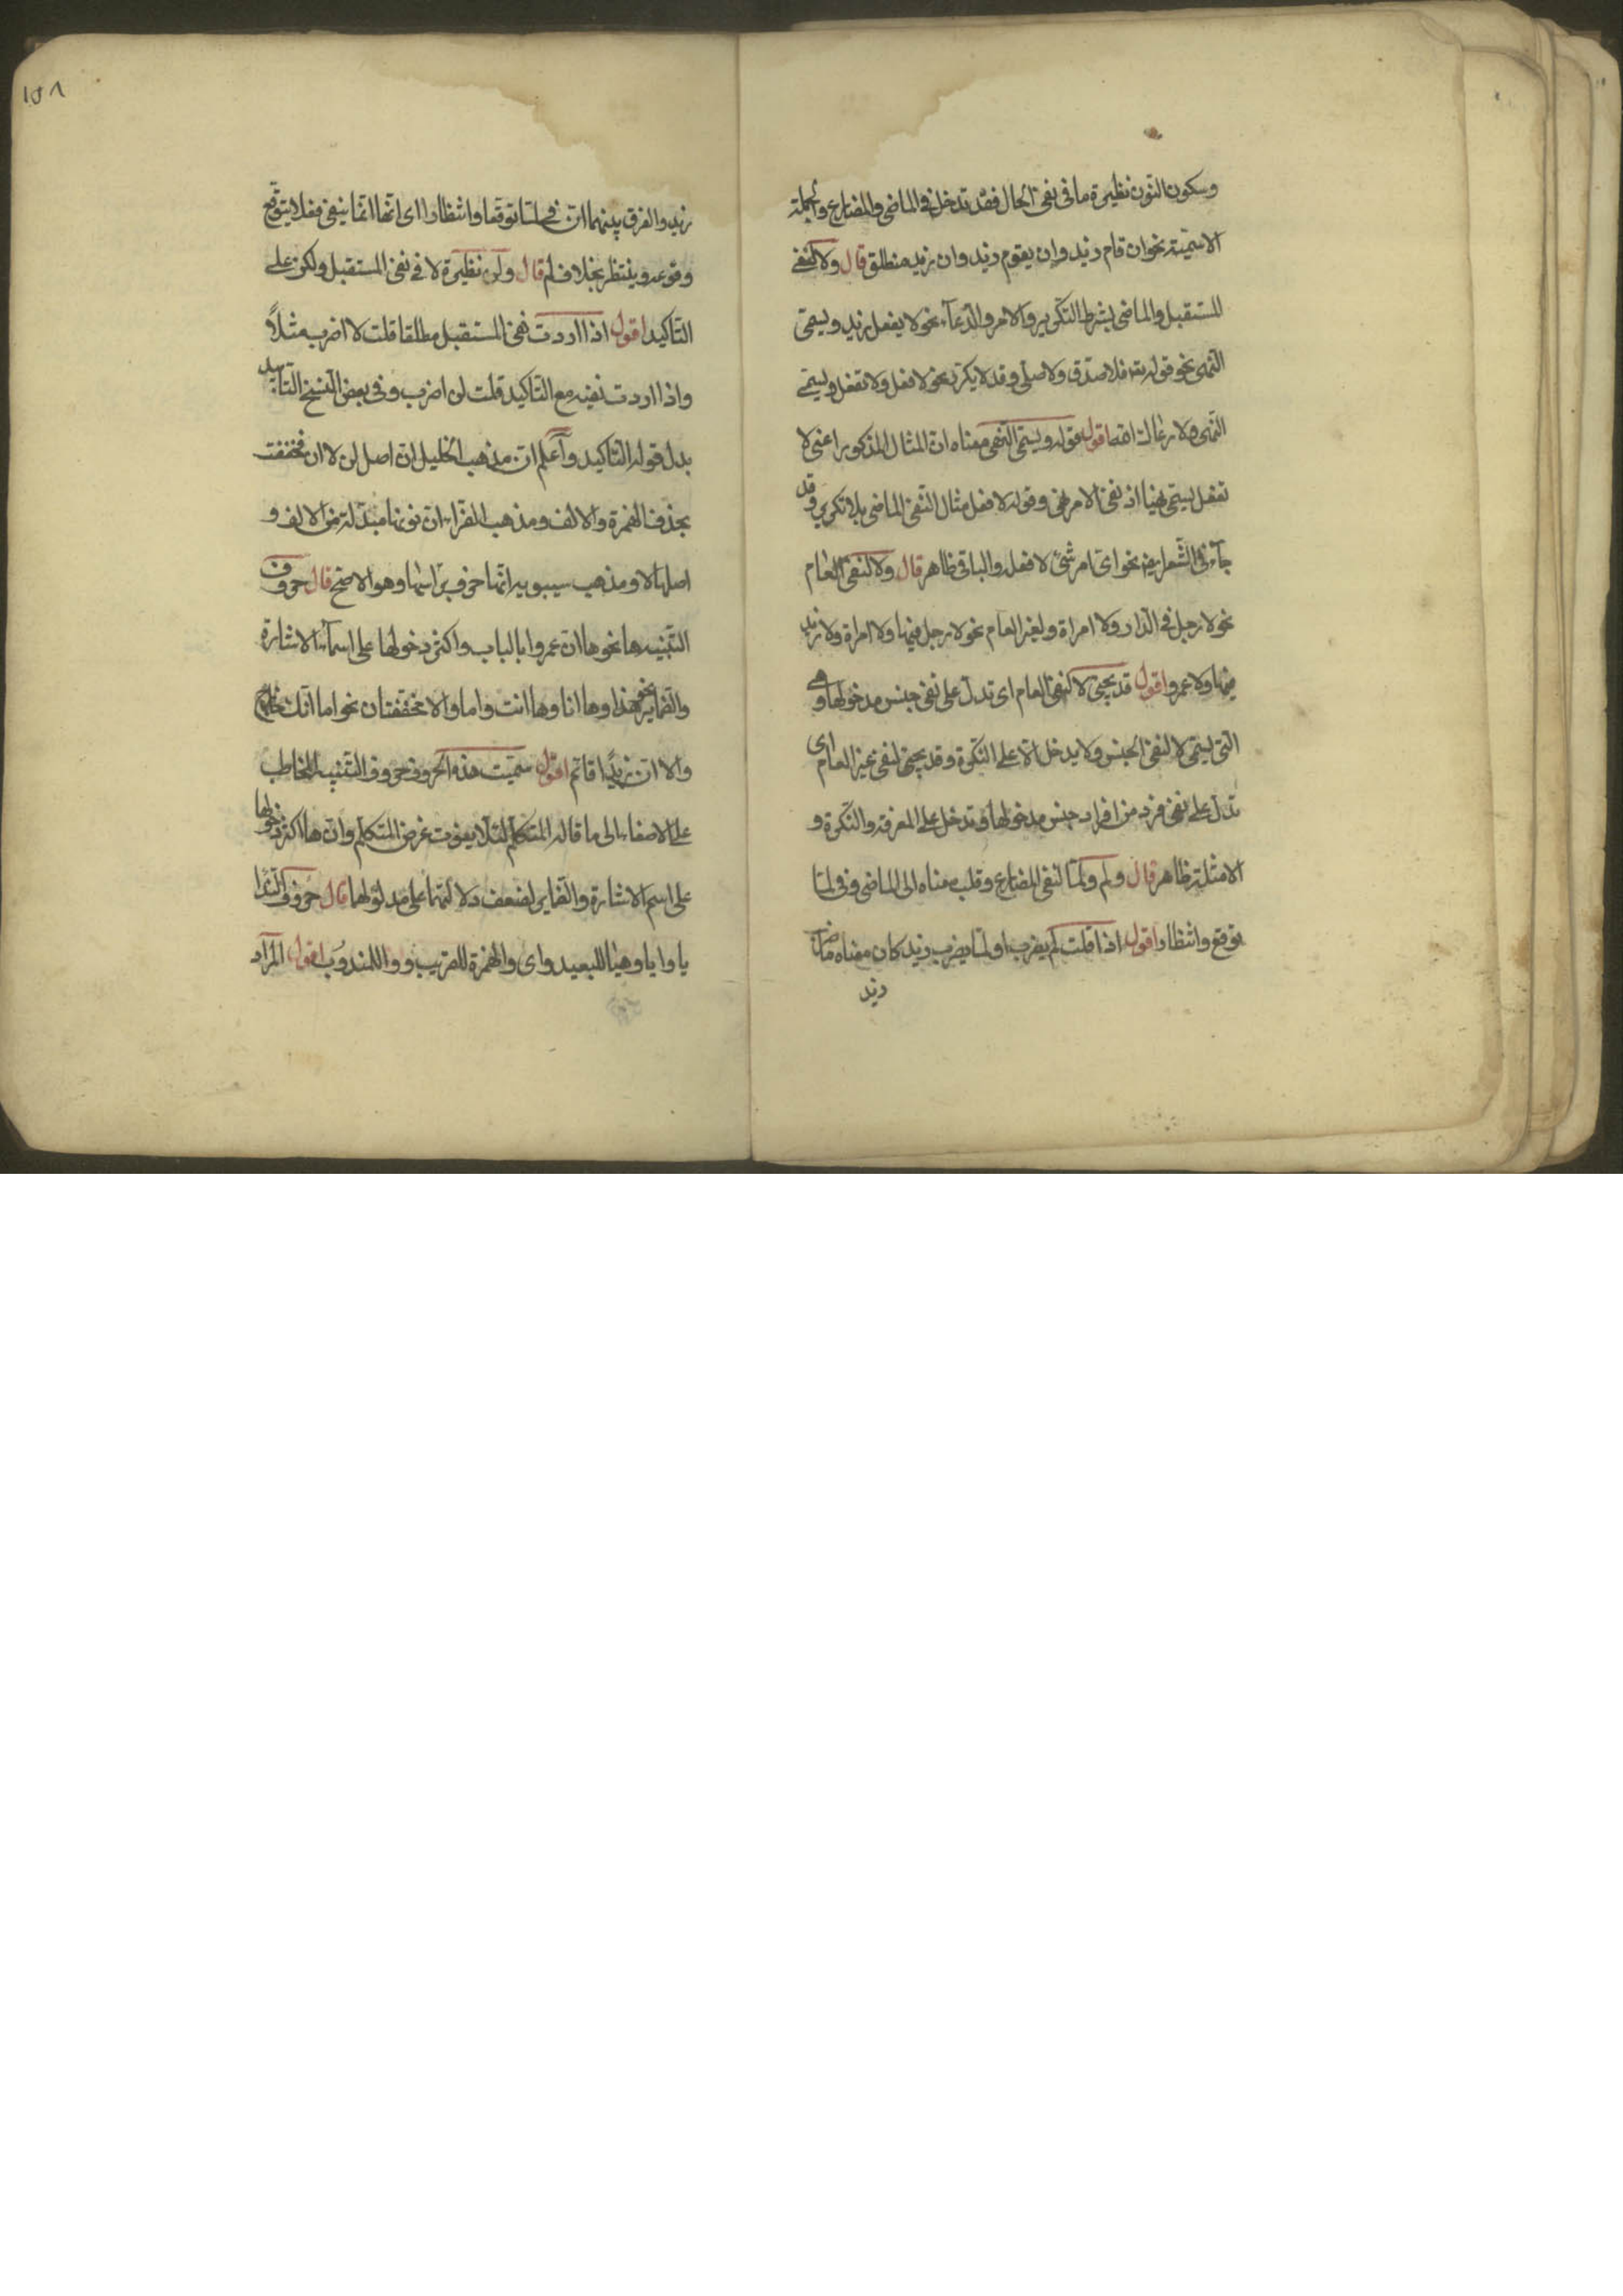 وسكون النون نظيرة ما فى نفى الحال فقد تدخل فى الماضى والمضارع والجملة
الاسمية نحو ان قام زيد وان يقوم زيد وان زيد منطلق قال ولا لنفى
للمستقبل والماضى بشرط التكرير والامر والدعآء نحو لا يفعل زيد ويسمى
النهى نحو قوله تع فلا صدق ولا صلى وقد لا يكرر نحو لا فعل ولا تفعل ويسمى
النهى ولا رعاك الله اقول قوله ويسمى النهى معناه ان المثال المذكور اعنى لا
تفعل يسمى نهيا اذ نفى الامر نهى وقوله لا فعل مثال النفى الماضى بلا تكرير وقد
جآء فى الشعر نحو اى امر شئ لا فعله والباقى ظاهر قال ولا لنفى العام
نحو لا رجل فى الدار ولا امراة ولغير العام نحو لا رجل فيها ولا امراة ولا زيد
فيها ولا عمرو اقول قد يجئ لا لنفى العام اى تدل على نفى جنس مدخولها وهى
التى يسمى لا لنفى الجنس ولا يدخل الا على النكرة وقد يجئ لنفى غير العام اى
تدل على نفى فرد من افراد جنس مدخولها وتدخل على المعرفة والنكرة و
الامثلة ظاهر قال ولم ولما لنفى المضارع وقلب معناه الى الماضى وفى لما
توقع وانتظار اقول اذا قلت لم يضرب او لما يضرب زيد كان معناه ما ضرب
زيد
١٥٨
زيد والفرق بينهما ان فى لما توقعا وانتظارا اى انها انما ينفى فعلا يتوقع
وقوعه وينتظر بخلاف لم قال ولن نظيرة لا فى نفى المستقبل ولكن على
التاكيد اقول اذا اردت نفى المستقبل مطلقا قلت لا اضرب مثلاً
واذا اردت نفيه مع التاكيد قلت لن اضرب وفى بعض النسخ التابيد
بدل قوله التاكيد وآعلم ان مذهب الخليل ان اصل لن لا ان فخففت
بحذف الهمزة والالف ومذهب الفراء ان نونها مبدلة من الالف و
اصلها لا ومذهب سيبويه انها حرف براسها وهو الاصح قال حروف
التنبيه ها نحو ها ان عمروا بالباب واكثر دخولها على اسمآء الاشارة
والضماير نحو هذا وها انا وها انت واما والا مخففتان نحو اما انك خارج
والا ان زيدا قائم اقول سميت هذه الحروف حروف التنبيه للمخاطب
على الاصغاء الى ما قاله المتكلم لئلا يفوت غرض المتكلم وان ها اكثر دخولها
على اسم الاشارة والضماير لضعف دلالتها على مدلولها قال حروف الندا
يا وايا وهيا للبعيد واى والهمزة للقريب ووا للمندوب اقول المراد